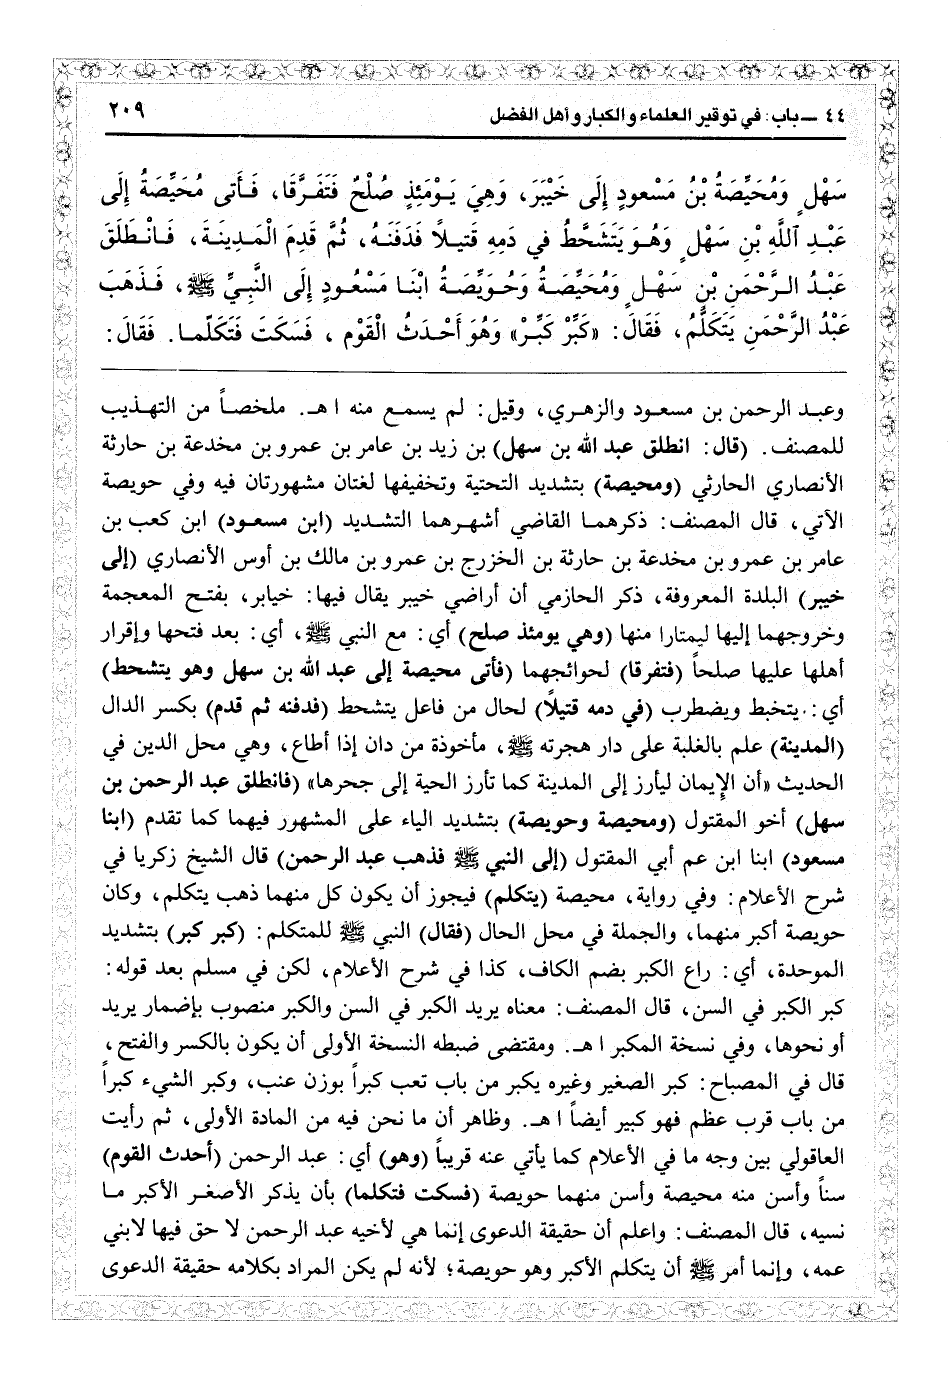 ٤٤ ـ باب: في توقير العلماء والكبار وأهل الفضل
٢٠٩
سَهْلٍ وَمُحَيِّصَةُ بْنُ مَسْعودٍ إِلَى خَيْبَرَ، وَهِيَ يَـوْمَئِذٍ صُلْحٌ فَتَفـرَّقَا، فَـأَتى مُحَيِّصَةُ إِلَى
عَبْـدِ آللَّهِ بْنِ سَهْلٍ وَهُـوَ يَتَشَحَّطُ في دَمِهِ قَتيـلًا فَدَفَنَـهُ، ثُمَّ قَدِمَ الْمَـدِينَـةَ، فَـانْطَلَقَ
عَبْدُ الـرَّحْمَنِ بْنِ سَهْـلٍ وَمُحَيِّصَـةُ وَحُـوَيِّصَـةُ ابْنَـا مَسْعُـودٍ إِلَى النَّبِيِّ ﷺ، فَـذَهَبَ
عَبْدُ الرَّحْمَنِ يَتَكَلَّمُ، فَقَالَ: «كَبِّرْ كَبِّرْ» وَهُوَ أَحْدَثُ الْقَوْمِ ، فَسَكَتَ فَتَكَلَّمـا. فَقَالَ:
وعبـد الرحمن بن مسعود والزهـري، وقيل: لم يسمـع منه ا هـ. ملخصـاً من التهـذيب
للمصنف. (قال: انطلق عبد الله بن سهل) بن زيد بن عامر بن عمرو بن مخدعة بن حارثة
الأنصاري الحارثي (ومحيصة) بتشديد التحتية وتخفيفها لغتان مشهورتان فيه وفي حويصة
الآتي، قال المصنف: ذكرهمـا القاضي أشهـرهما التشـديد (ابن مسعـود) ابن كعب بن
عامر بن عمرو بن مخدعة بن حارثة بن الخزرج بن عمرو بن مالك بن أوس الأنصاري (إلى
خيبر) البلدة المعروفة، ذكر الحازمي أن أراضي خيبر يقال فيها: خيابر، بفتـح المعجمة
وخروجهما إليها ليمتارا منها (وهي يومئذ صلح) أي: مع النبي ﷺ، أي: بعد فتحها وإقرار
أهلها عليها صلحاً (فتفرقا) لحوائجهما (فأتى محيصة إلى عبد الله بن سهل وهو يتشحط)
أي: يتخبط ويضطرب (في دمه قتيلًا) لحال من فاعل يتشحط (فدفنه ثم قدم) بكسر الدال
(المدينة) علم بالغلبة على دار هجرته ﷺ، مأخوذة من دان إذا أطاع، وهي محل الدين في
الحديث «أن الإِيمان ليأرز إلى المدينة كما تأرز الحية إلى جحرها» (فانطلق عبد الرحمن بن
سهل) أخو المقتول (ومحيصة وحويصة) بتشديد الياء على المشهور فيهما كما تقدم (ابنا
مسعود) ابنا ابن عم أبي المقتول (إلى النبي ﷺ فذهب عبد الرحمن) قال الشيخ زكريا في
شرح الأعلام: وفي رواية، محيصة (يتكلم) فيجوز أن يكون كل منهما ذهب يتكلم، وكان
حويصة أكبر منهما، والجملة في محل الحال (فقال) النبي ﷺ للمتكلم: (كبر كبر) بتشديد
الموحدة، أي: راع الكبر بضم الكاف، كذا في شرح الأعلام، لكن في مسلم بعد قوله:
كبر الكبر في السن، قال المصنف: معناه يريد الكبر في السن والكبر منصوب بإضمار يريد
أو نحوها، وفي نسخة المكبر ا هـ. ومقتضى ضبطه النسخة الأولى أن يكون بالكسر والفتح،
قال في المصباح: كبر الصغير وغيره يكبر من باب تعب كبراً بوزن عنب، وكبر الشيء كبراً
من باب قرب عظم فهو كبير أيضاً ا هـ. وظاهر أن ما نحن فيه من المادة الأولى، ثم رأيت
العاقولي بين وجه ما في الأعلام كما يأتي عنه قريباً (وهو) أي: عبد الرحمن (أحدث القوم)
سناً وأسن منه محيصة وأسن منهما حويصة (فسكت فتكلما) بأن يذكر الأصغر الأكبر مـا
نسيه، قال المصنف: واعلم أن حقيقة الدعوى إنما هي لأخيه عبد الرحمن لا حق فيها لابني
عمه، وإنما أمر ﷺ أن يتكلم الأكبر وهو حويصة؛ لأنه لم يكن المراد بكلامه حقيقة الدعوى